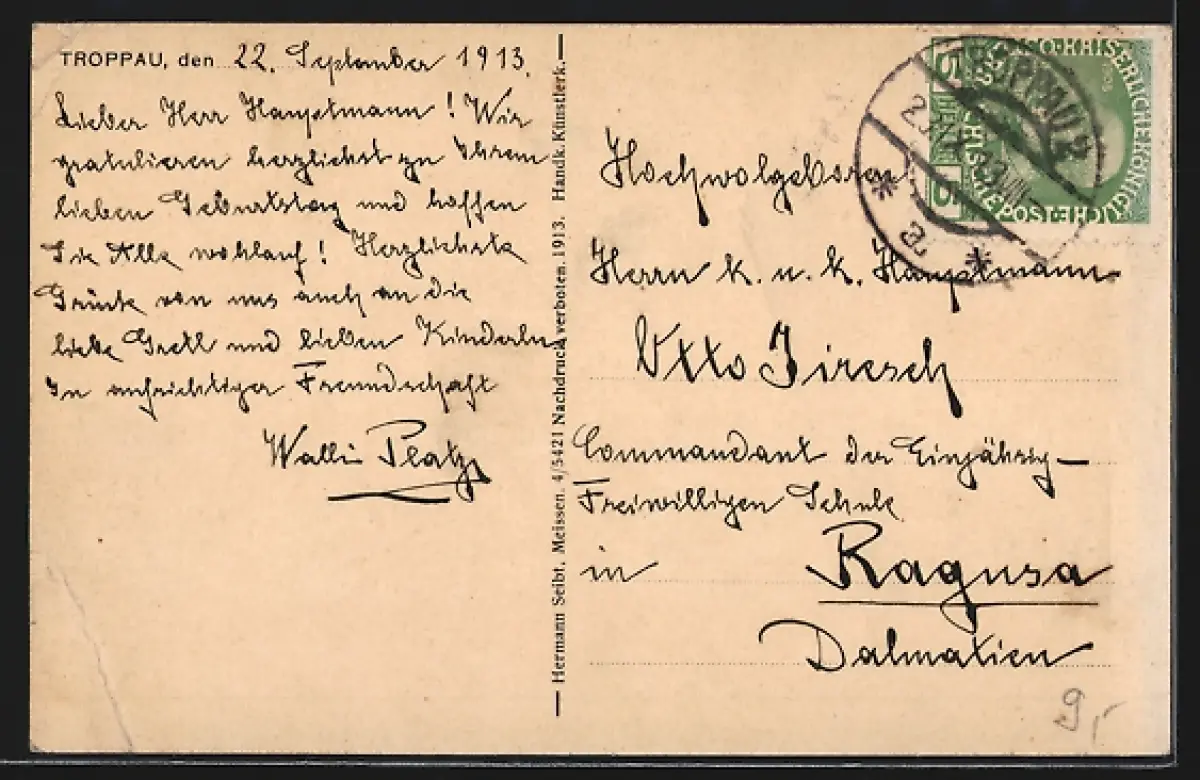 TROPPAU, den 22. September 1913.
Lieber Herr Hauptmann! Wir
gratulieren herzlichst zu Ihrem
lieben Geburtstag und hoffen
Sie Alle wohlauf! Herzlichste
Grüße von uns auch an die
liebe Gretl und lieben Kinderln
In aufrichtiger Freundschaft
Walli Platz
— Hermann Seibt, Meissen. 4/5421 Nachdruck verboten. 1913. Handk. Künstlerk. —
TROPPAU 2
* a *
5 HELLER 5
Hochwolgeboren
Herrn k. u. k. Hauptmann
Otto Jiresch
Commandant der Einjährig-
Freiwilligen Schule
in Ragusa
Dalmatien
9,-